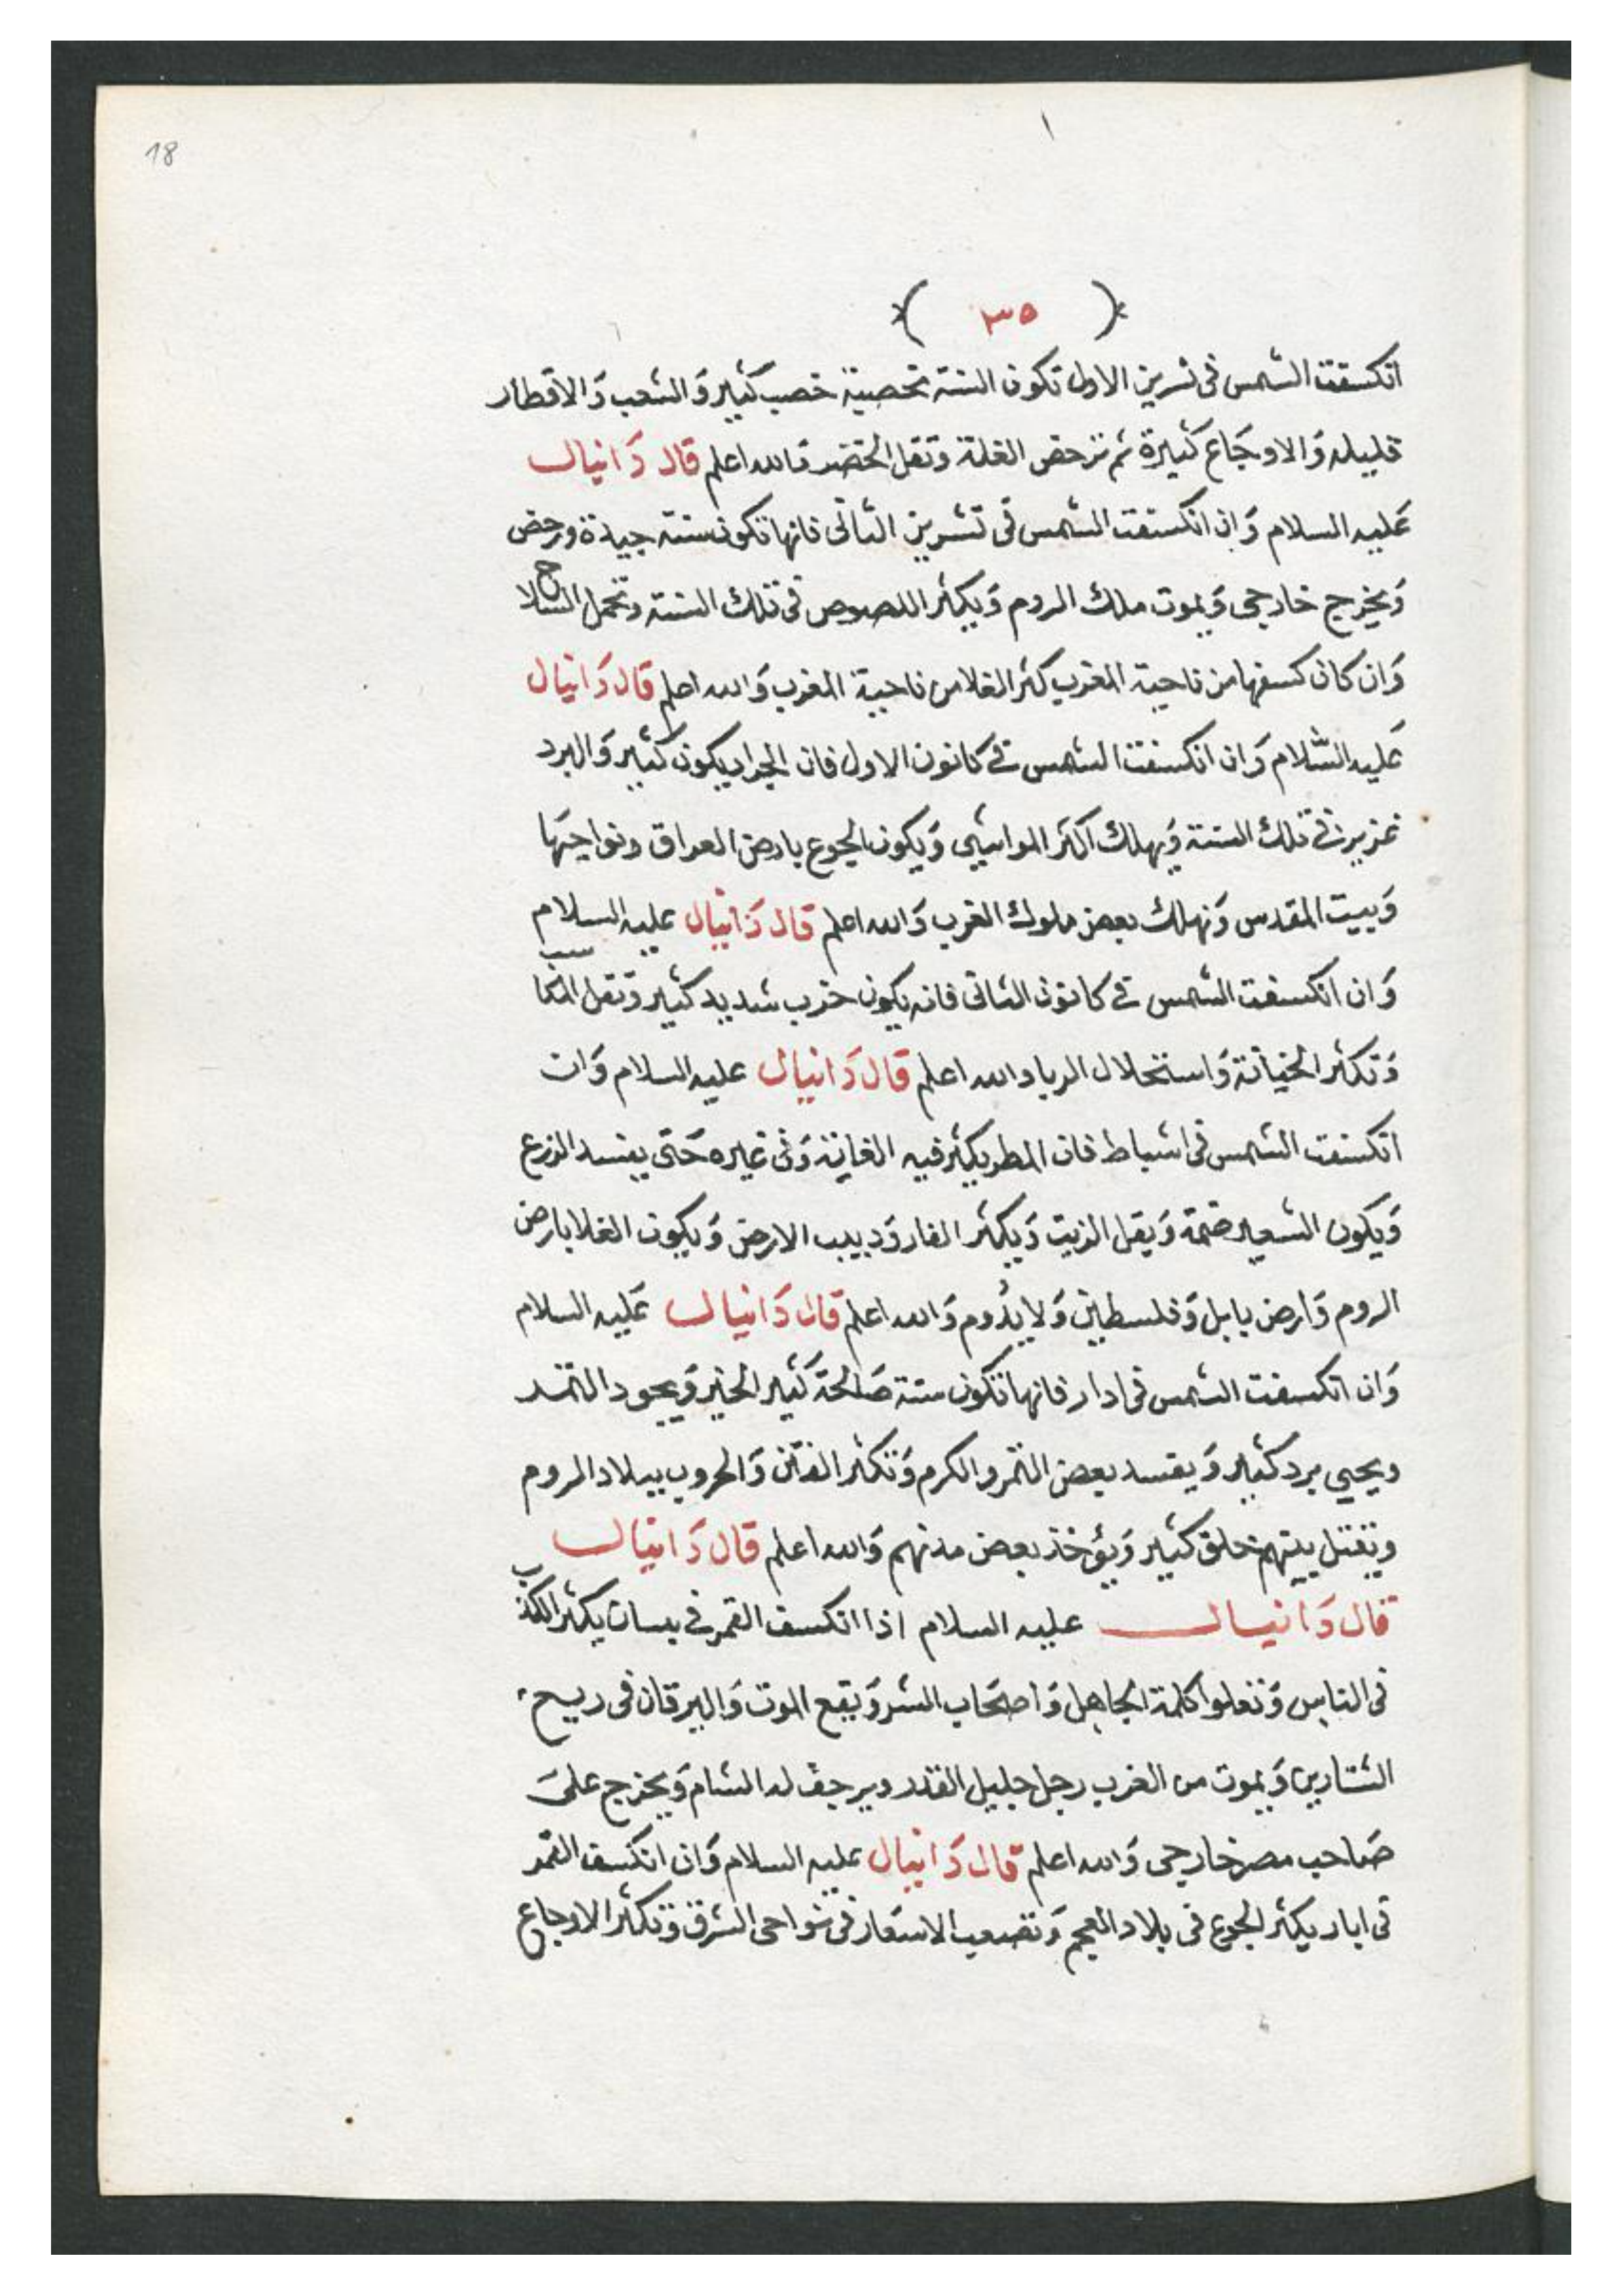 18
( ٣٥ )
انكسفت الشمس فى تشرين الاول تكون السنة مخصبة خصب كثير وَالشعب وَالاقطار
قليله وَالاوجَاع كثيرة ثم ترخص الغلة وتقل الخضر وَالله اعلم قال دَانيال
عَليه السلام وَان انكسفت الشمس فى تشرين الثانى فانها تكون سنة جيدة ورخص
وَيخرج خارجى وَيموت ملك الروم وَيكثر اللصوص فى تلك السنة وتحمل السلاح
وَان كان كسفها من ناحية المغرب كثر الغلا من ناحية المغرب وَالله اعلم قال دَانيال
عَليه السّلام وَان انكسفت الشمس فى كانون الاول فان الجراد يكون كثير وَالبرد
غزير فى تلك السنة وَيهلك اكثر المواشى وَيكون الجوع بارض العراق ونواحيَها
وَبيت المقدس وَيهلك بعض ملوك الغرب وَالله اعلم قال دَانيال عليه السلام
وَان انكسفت الشمس فى كانون الثانى فانه يكون حرب شديد كثير وَتقل المكاسب
وَتكثر الخيانة وَاستحلال الربا والله اعلم قال دَانيال عليه السلام وَان
انكسفت الشمس فى اشباط فان المطر يكثر فيه الغاية وَفى غيره حَتى يفسد الزرع
وَيكون الشعير وَيقل الزيت وَيكثر الفار وَدبيب الارض وَيكون الغلا بارض
الروم وَارض بابل وَفلسطين وَلا يدُوم وَالله اعلم قال دَانيال عَليه السلام
وَان انكسفت الشمس فى ادار فانها تكون سنة صَالحة كَثير الخير وَيجود الثمر
ويجيى برد كثير وَيفسد بعض الثمر والكرم وَتكثر الفتن وَالحروب ببلاد الروم
ويقتل بينهم خلق كثير وَيؤخذ بعض مدنهم وَالله اعلم قال دَانيال
قال دَانيال عليه السلام اذا انكسف القمر فى نيسان يكثر الكذب
فى الناس وَتعلوا كلمة الجاهل وَاصحَاب الشر وَيقع الموت وَاليرقان فى ريح
التشارين وَيموت من الغرب رجل جليل القدر ويرجف له الشام وَيخرج علىَ
صَاحب مصر خارجى وَالله اعلم قال دَانيال عليه السلام وَان انكسف القمر
فى ايار يكثر الجوع فى بلاد العجم وَتصعب الاسعَار فى نواحى الشرق وَتكثر الاوجاع